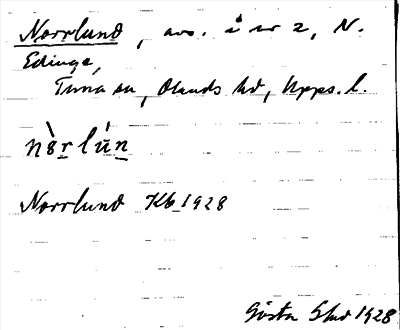 Norrlund, avs. i nr 2, N.
Edinge,
Tuna sn, Olands hd, Upps. l.
nòrlún
Norrlund Kb 1928
Gösta 1928